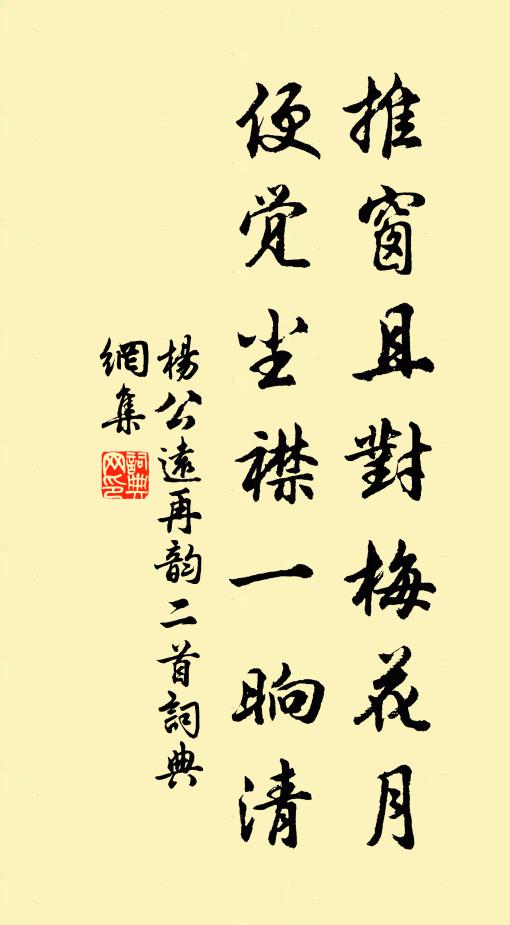 推窗且對梅花月
便觉尘襟一晌清
楊公遠再韵二首詞典
網集
詞典网印